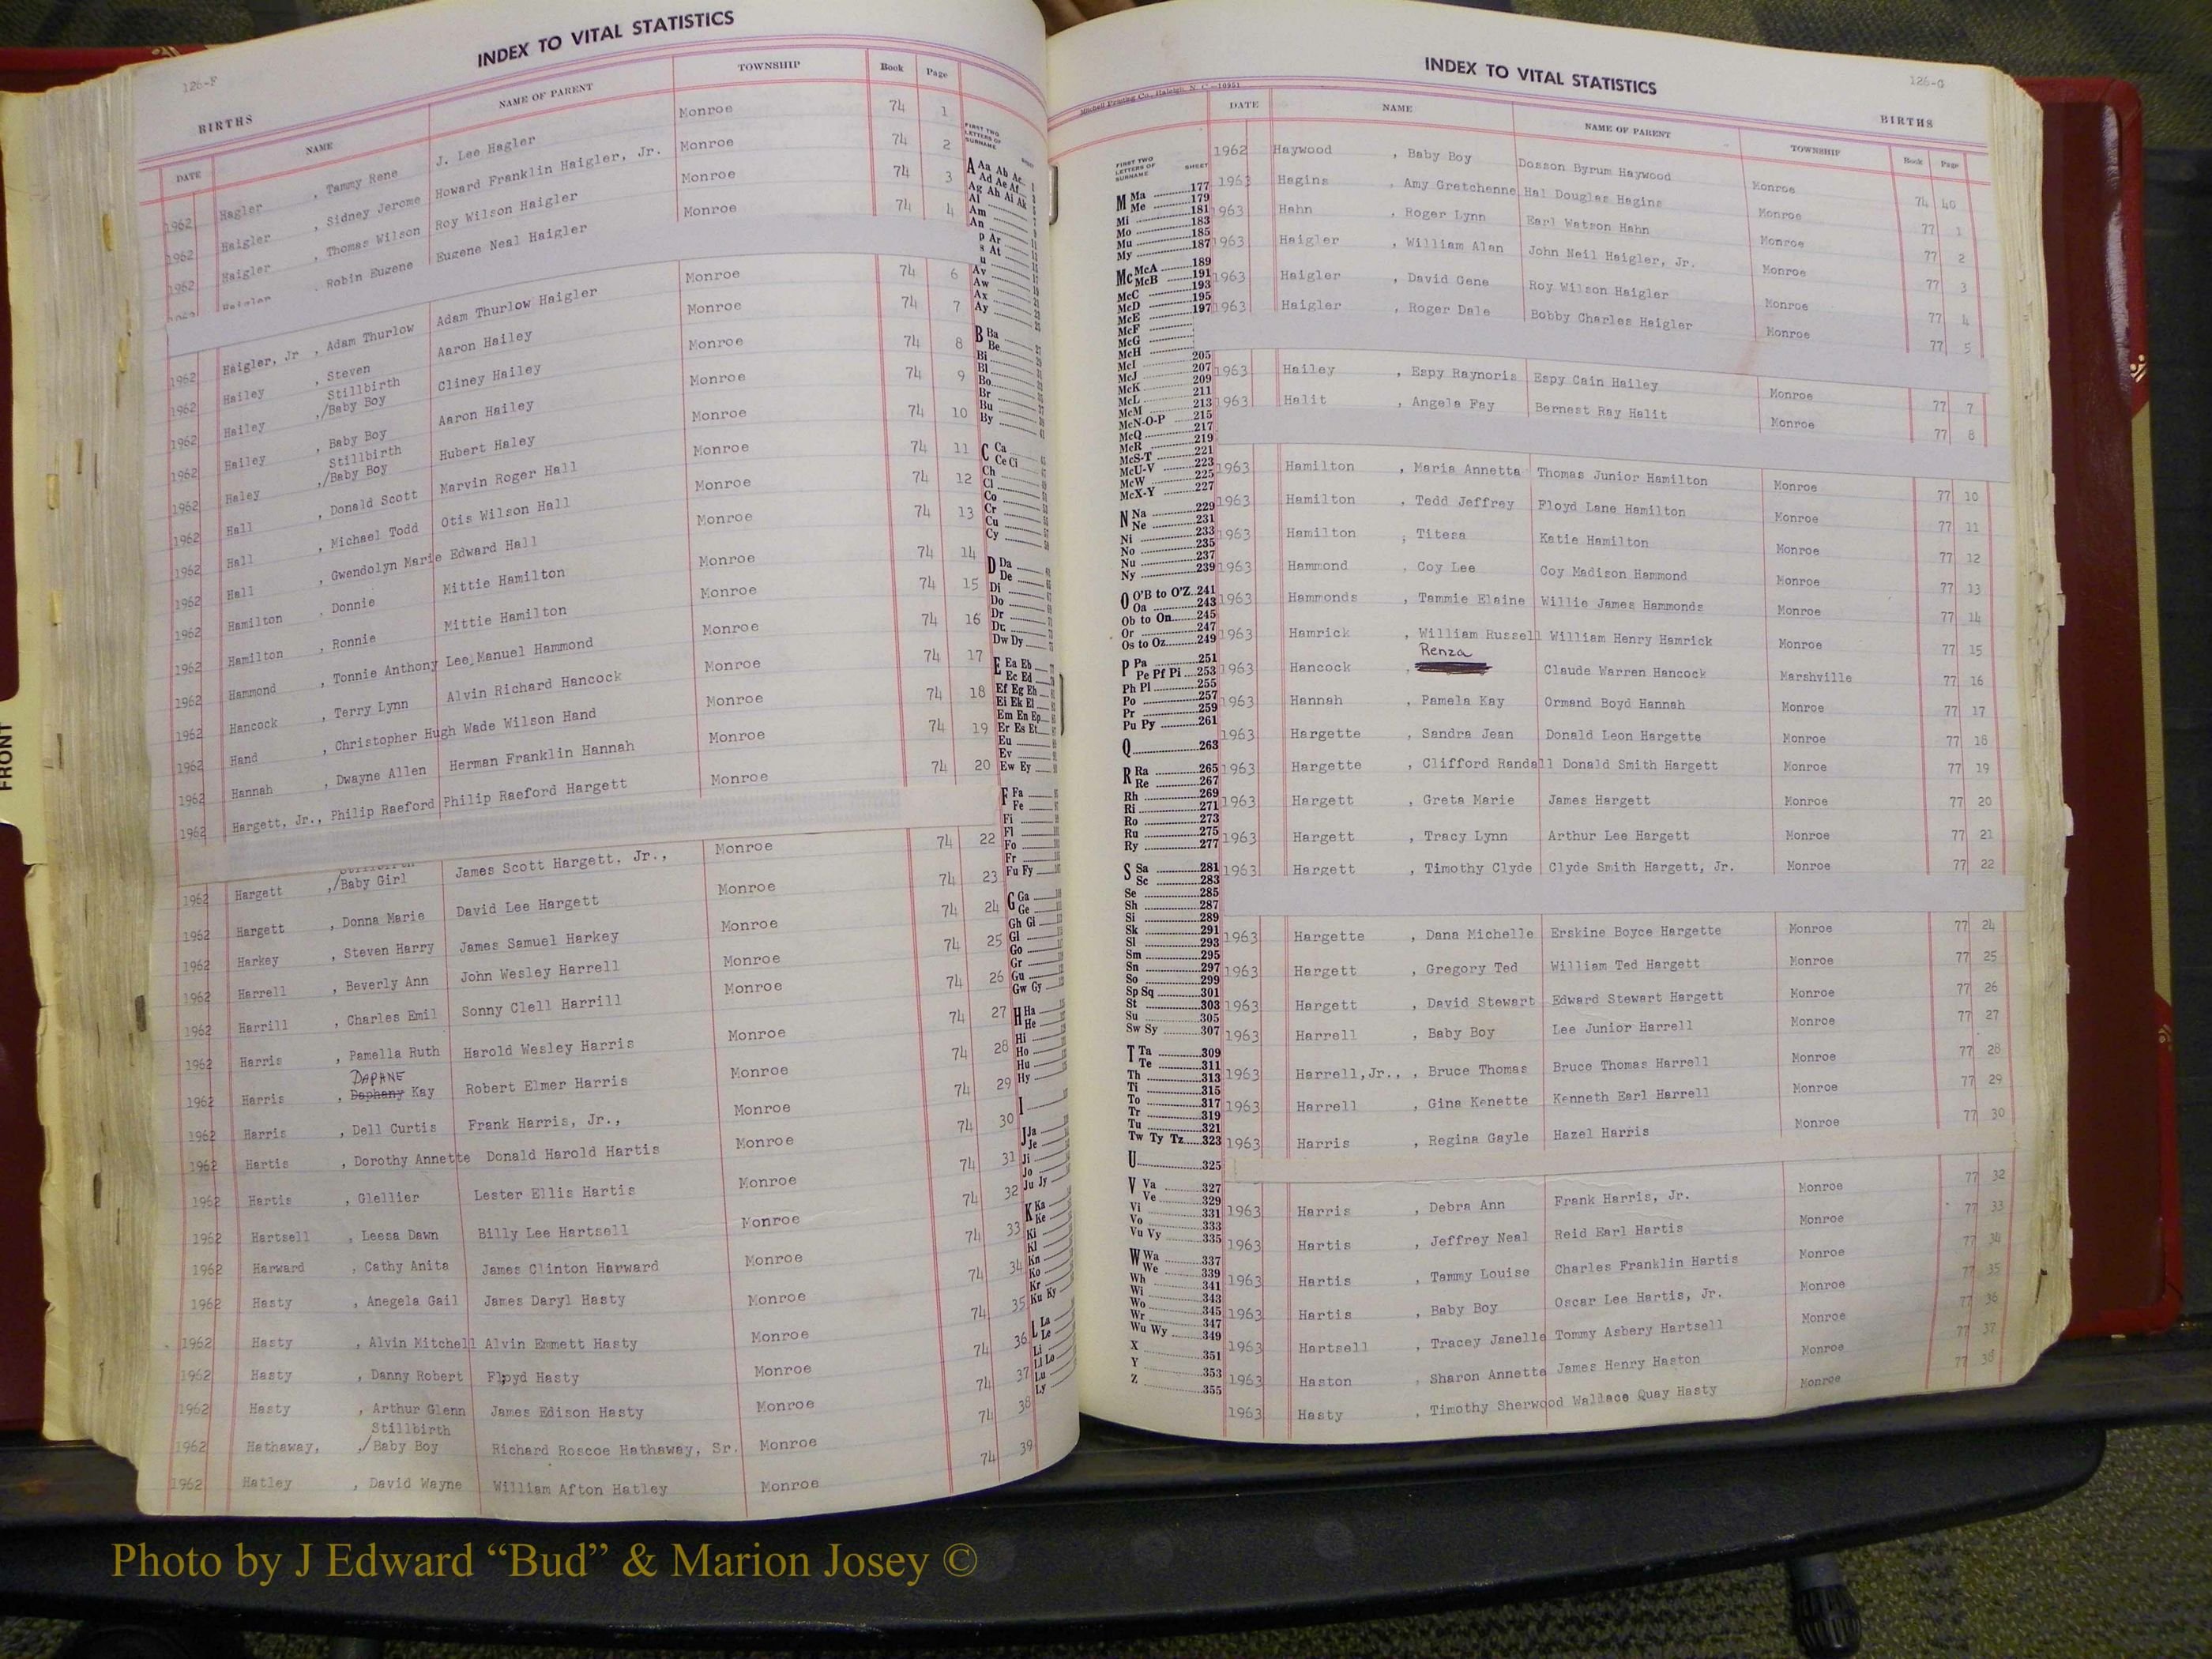 126-F
INDEX TO VITAL STATISTICS
BIRTHS
DATE NAME NAME OF PARENT TOWNSHIP Book Page
1962 Hagler , Tammy Rene J. Lee Hagler Monroe 74 1
1962 Haigler , Sidney Jerome Howard Franklin Haigler, Jr. Monroe 74 2
1962 Haigler , Thomas Wilson Roy Wilson Haigler Monroe 74 3
1962 Haigler , Robin Eugene Eugene Neal Haigler Monroe 74 4
1962 Haigler, Jr , Adam Thurlow Adam Thurlow Haigler Monroe 74 6
1962 Hailey , Steven Aaron Hailey Monroe 74 7
1962 Hailey ,/Stillbirth Baby Boy Cliney Hailey Monroe 74 8
1962 Hailey , Baby Boy Aaron Hailey Monroe 74 9
1962 Haley ,/Stillbirth Baby Boy Hubert Haley Monroe 74 10
1962 Hall , Donald Scott Marvin Roger Hall Monroe 74 11
1962 Hall , Michael Todd Otis Wilson Hall Monroe 74 12
1962 Hall , Gwendolyn Marie Edward Hall Monroe 74 13
1962 Hamilton , Donnie Mittie Hamilton Monroe 74 14
1962 Hamilton , Ronnie Mittie Hamilton Monroe 74 15
1962 Hammond , Tonnie Anthony Lee Manuel Hammond Monroe 74 16
1962 Hancock , Terry Lynn Alvin Richard Hancock Monroe 74 17
1962 Hand , Christopher Hugh Wade Wilson Hand Monroe 74 18
1962 Hannah , Dwayne Allen Herman Franklin Hannah Monroe 74 19
1962 Hargett, Jr., Philip Raeford Philip Raeford Hargett Monroe 74 20
1962 Hargett ,/Baby Girl James Scott Hargett, Jr., Monroe 74 22
1962 Hargett , Donna Marie David Lee Hargett Monroe 74 23
1962 Harkey , Steven Harry James Samuel Harkey Monroe 74 24
1962 Harrell , Beverly Ann John Wesley Harrell Monroe 74 25
1962 Harrill , Charles Emil Sonny Clell Harrill Monroe 74 26
1962 Harris , Pamella Ruth Harold Wesley Harris Monroe 74 27
DAPHNE
1962 Harris , Daphany Kay Robert Elmer Harris Monroe 74 28
1962 Harris , Dell Curtis Frank Harris, Jr., Monroe 74 29
1962 Hartis , Dorothy Annette Donald Harold Hartis Monroe 74 30
1962 Hartis , Glellier Lester Ellis Hartis Monroe 74 31
1962 Hartsell , Leesa Dawn Billy Lee Hartsell Monroe 74 32
1962 Harward , Cathy Anita James Clinton Harward Monroe 74 33
1962 Hasty , Anegela Gail James Daryl Hasty Monroe 74 34
1962 Hasty , Alvin Mitchell Alvin Emmett Hasty Monroe 74 35
1962 Hasty , Danny Robert Floyd Hasty Monroe 74 36
1962 Hasty , Arthur Glenn James Edison Hasty Monroe 74 37
Stillbirth
1962 Hathaway, ,/Baby Boy Richard Roscoe Hathaway, Sr. Monroe 74 38
1962 Hatley , David Wayne William Afton Hatley Monroe 74 39
FRONT
FIRST TWO LETTERS OF SURNAME
126-G
INDEX TO VITAL STATISTICS
Mitchell Printing Co., Raleigh, N. C.—10951
BIRTHS
DATE NAME NAME OF PARENT TOWNSHIP Book Page
1962 Haywood , Baby Boy Dosson Byrum Haywood Monroe 74 40
1963 Hagins , Amy Gretchenne Hal Douglas Hagins Monroe 77 1
1963 Hahn , Roger Lynn Earl Watson Hahn Monroe 77 2
1963 Haigler , William Alan John Neil Haigler, Jr. Monroe 77 3
1963 Haigler , David Gene Roy Wilson Haigler Monroe 77 4
1963 Haigler , Roger Dale Bobby Charles Haigler Monroe 77 5
1963 Hailey , Espy Raynoris Espy Cain Hailey Monroe 77 7
1963 Halit , Angela Fay Bernest Ray Halit Monroe 77 8
1963 Hamilton , Maria Annetta Thomas Junior Hamilton Monroe 77 10
1963 Hamilton , Tedd Jeffrey Floyd Lane Hamilton Monroe 77 11
1963 Hamilton , Titesa Katie Hamilton Monroe 77 12
1963 Hammond , Coy Lee Coy Madison Hammond Monroe 77 13
1963 Hammonds , Tammie Elaine Willie James Hammonds Monroe 77 14
1963 Hamrick , William Russell William Henry Hamrick Monroe 77 15
Renza
1963 Hancock , Claude Warren Hancock Marshville 77 16
1963 Hannah , Pamela Kay Ormand Boyd Hannah Monroe 77 17
1963 Hargette , Sandra Jean Donald Leon Hargette Monroe 77 18
1963 Hargette , Clifford Randall Donald Smith Hargett Monroe 77 19
1963 Hargett , Greta Marie James Hargett Monroe 77 20
1963 Hargett , Tracy Lynn Arthur Lee Hargett Monroe 77 21
1963 Hargett , Timothy Clyde Clyde Smith Hargett, Jr. Monroe 77 22
1963 Hargette , Dana Michelle Erskine Boyce Hargette Monroe 77 24
1963 Hargett , Gregory Ted William Ted Hargett Monroe 77 25
1963 Hargett , David Stewart Edward Stewart Hargett Monroe 77 26
1963 Harrell , Baby Boy Lee Junior Harrell Monroe 77 27
1963 Harrell,Jr., , Bruce Thomas Bruce Thomas Harrell Monroe 77 28
1963 Harrell , Gina Kenette Kenneth Earl Harrell Monroe 77 29
1963 Harris , Regina Gayle Hazel Harris Monroe 77 30
1963 Harris , Debra Ann Frank Harris, Jr. Monroe 77 32
1963 Hartis , Jeffrey Neal Reid Earl Hartis Monroe 77 33
1963 Hartis , Tammy Louise Charles Franklin Hartis Monroe 77 34
1963 Hartis , Baby Boy Oscar Lee Hartis, Jr. Monroe 77 35
1963 Hartsell , Tracey Janelle Tommy Asbery Hartsell Monroe 77 36
1963 Haston , Sharon Annette James Henry Haston Monroe 77 37
1963 Hasty , Timothy Sherwood Wallace Quay Hasty Monroe 77 38
FIRST TWO LETTERS OF SURNAME SHEET
M Ma 177
Me 179
Mi 181
Mo 183
Mu 185
My 187
Mc McA 189
McB 191
McC 193
McD 195
McE 197
McF
McG
McH
McI 205
McJ 207
McK 209
McL 211
McM 213
McN-O-P 215
McQ 217
McR 219
McS-T 221
McU-V 223
McW 225
McX-Y 227
N Na 229
Ne 231
Ni 233
No 235
Nu 237
Ny 239
O O'B to O'Z 241
Oa 243
Ob to On 245
Or 247
Os to Oz 249
P Pa 251
Pe Pf Pi 253
Ph Pl 255
Po 257
Pr 259
Pu Py 261
Q 263
R Ra 265
Re 267
Rh 269
Ri 271
Ro 273
Ru 275
Ry 277
S Sa 281
Sc 283
Se 285
Sh 287
Si 289
Sk 291
Sl 293
Sm 295
Sn 297
So 299
Sp Sq 301
St 303
Su 305
Sw Sy 307
T Ta 309
Te 311
Th 313
Ti 315
To 317
Tr 319
Tu 321
Tw Ty Tz 323
U 325
V Va 327
Ve 329
Vi 331
Vo 333
Vu Vy 335
W Wa 337
We 339
Wh 341
Wi 343
Wo 345
Wr 347
Wu Wy 349
X 351
Y 353
Z 355
Photo by J Edward “Bud” & Marion Josey ©